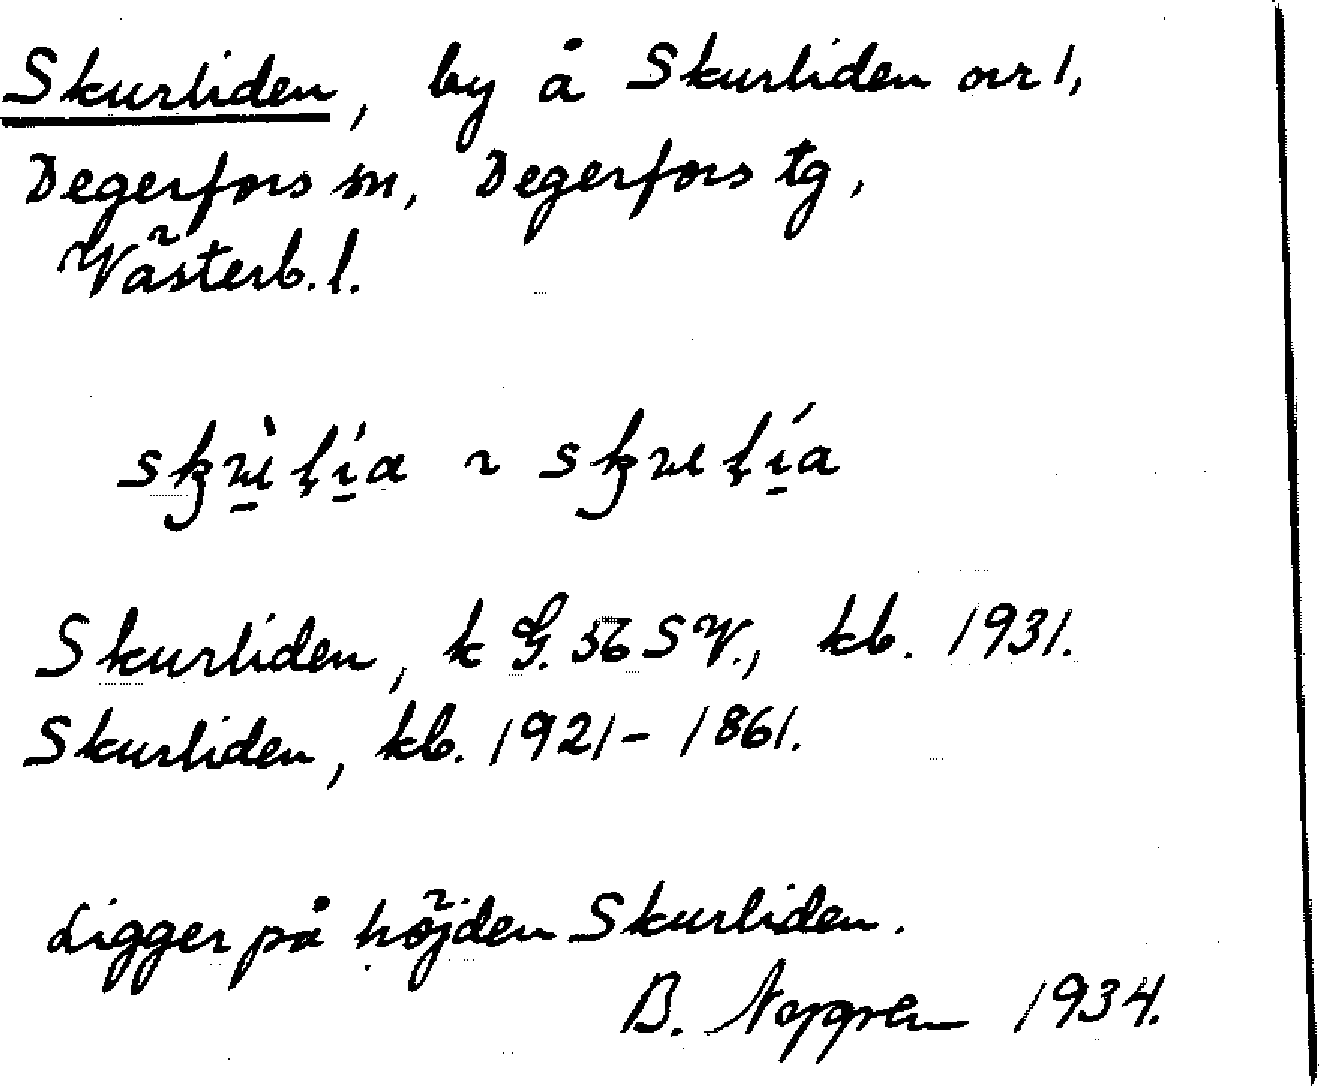 Skurliden, by å Skurliden nr 1,
Degerfors sn, Degerfors tg,
Västerb. l.
Skurliden, k G. 56 SV., kb. 1931.
Skurliden, kb. 1921-1861.
Ligger på höjden Skurliden.
B. 1934.